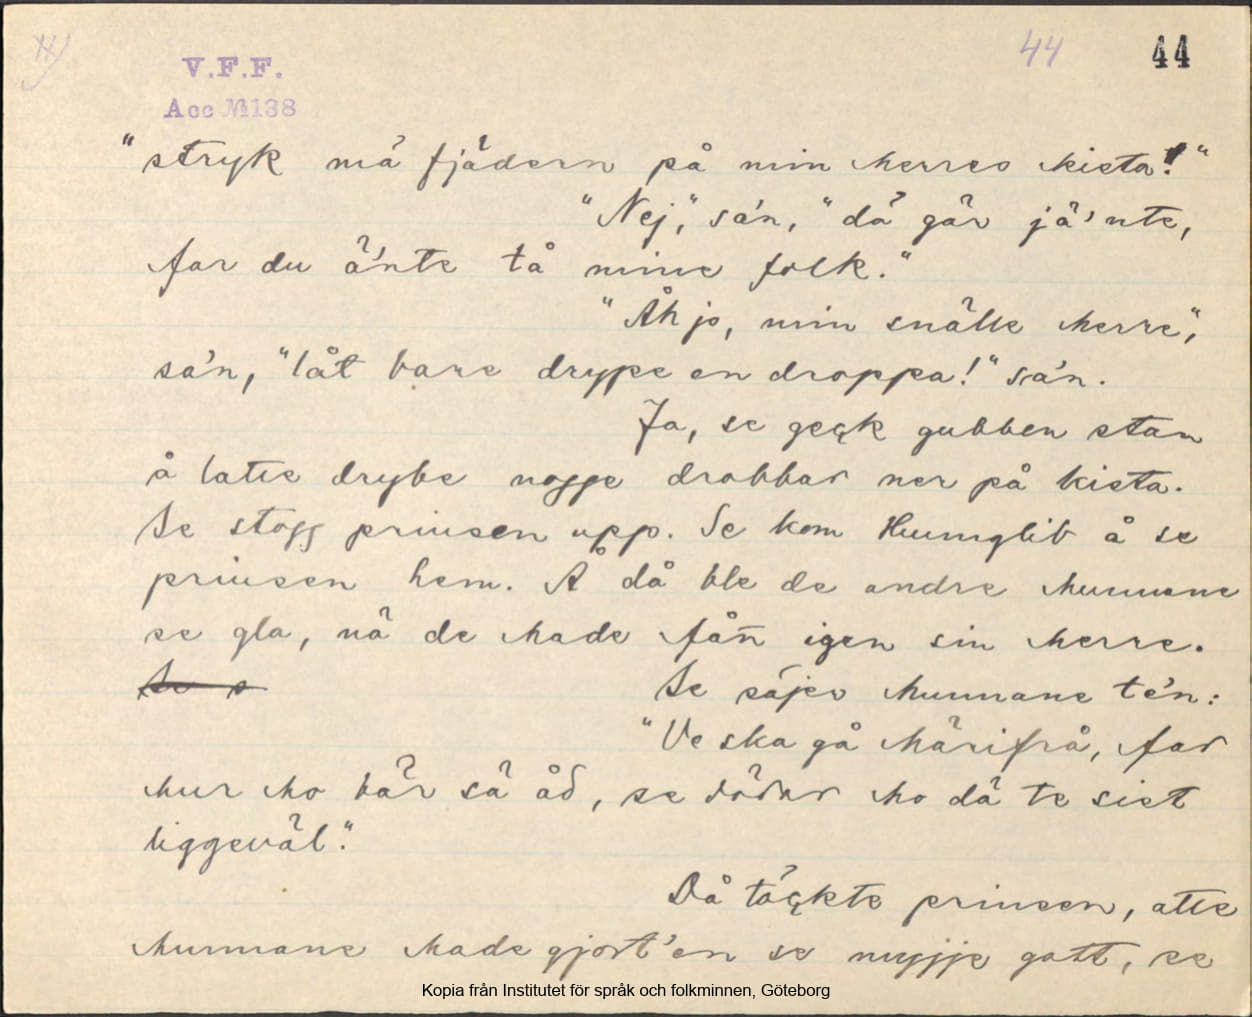 V.F.F.
Acc № 138
44 44
"stryk mä fjädern på min herres kista!"
"Nej," sa'n, "dä gär jä'nte,
far du ä'nte tå mine folk."
"Åh jo, min snälle herre",
sa'n, "låt bare drype en droppa!" sa'n.
Ja, se geçk gubben stan
å latte drybe nogge drobbar ner på kista.
Se stogg prinsen upp. Se kom Hunnglib å se
prinsen hem. Å då ble de andre hunnane
se gla, nä de hade fån igen sin herre.
Se säjer hunnane te'n:
"Ve ska gå härifrå, far
hur ho bär sä åd, se dödar ho dä te sist
liggeväl."
Då täçkte prinsen, atte
hunnane hade gjort'en se myjje gott, se
Kopia från Institutet för språk och folkminnen, Göteborg